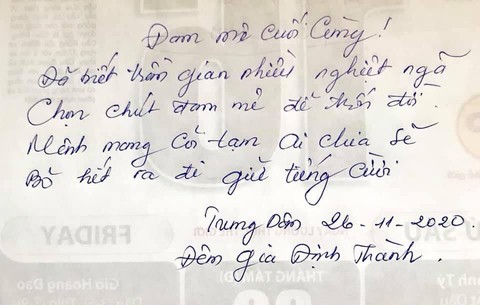 Đam mê cuối Cùng!
Đã biết trần gian nhiều nghiệt ngã
Chọn chút đam mê để trốn đời.
Mênh mong Cõi tạm ai chia sẻ
Bỏ hết ra đi giữ tiếng Cười
Trung Dân 26-11-2020.
Đêm Gia Định Thành.
FRIDAY
Giờ Hoàng Đạo